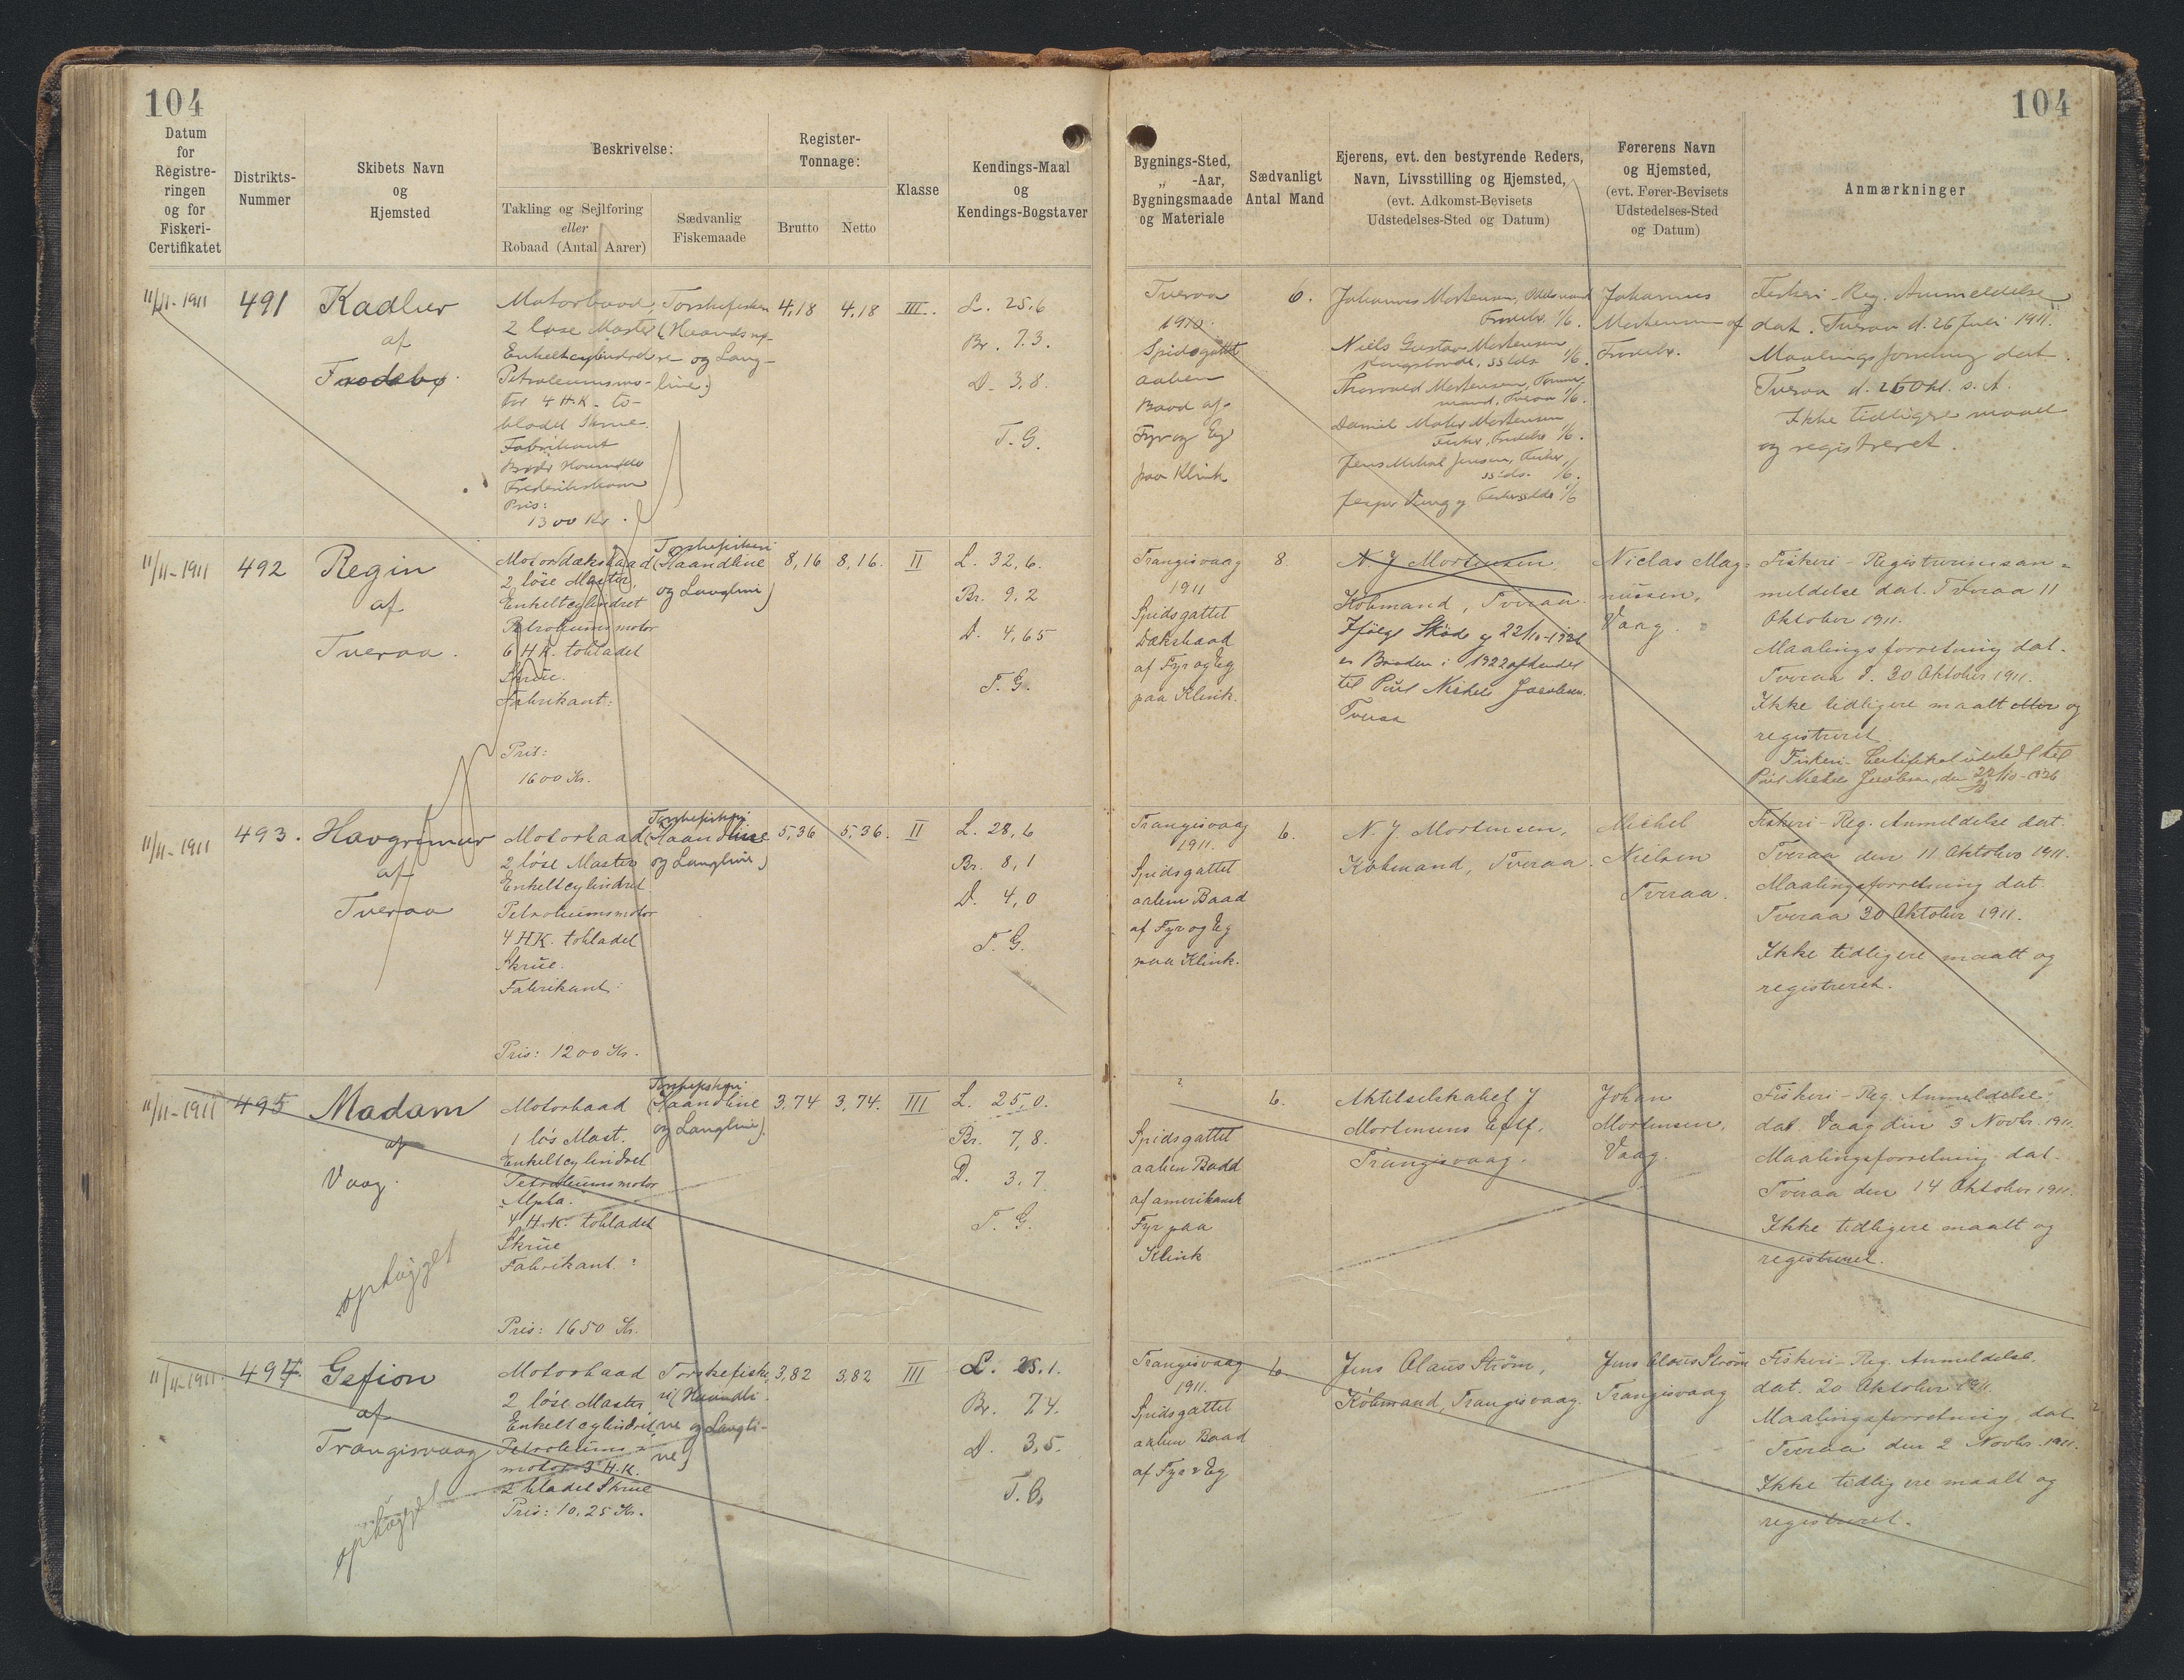 104
104
Datum
for
Registre-
ringen
og for
Fiskeri-
Certifikatet
Distrikts-
Nummer
Skibets Navn
og
Hjemsted
Beskrivelse:
Takling og Sejlføring
eller
Robaad (Antal Aarer)
Sædvanlig
Fiskemaade
Register-
Tonnage:
Brutto
Netto
Klasse
Kendings-Maal
og
Kendings-Bogstaver
Bygnings-Sted,
„ -Aar,
Bygningsmaade
og Materiale
Sædvanligt
Antal Mand
Ejerens, evt. den bestyrende Reders,
Navn, Livsstilling og Hjemsted,
(evt. Adkomst-Bevisets
Udstedelses-Sted og Datum)
Førerens Navn
og Hjemsted,
(evt. Fører-Bevisets
Udstedelses-Sted
og Datum)
Anmærkninger
11/11-1911
491
Kadlur
af
Frodeby.
Motorbaad,
2 løse Master
Enkeltcylindret
Petroleumsmo-
tor 4 H.K. to-
bladet Skrue.
Fabrikant
Brdr Houmøller
Frederikshavn
Pris:
1300 Kr.
Torskefiskeri
(Haandsnø-
re og Lang-
line.)
4,18
4,18
III.
L. 25,6
Br. 7.3.
D. 3,8.
T. G.
Tveraa
1910.
Spidsgattet
aaben
Baad af
Fyr og Eg
paa Klink
6.
Johannes Mortensen,
Frodebø. 1/6.
Niels Gustav Mortensen
Kongsbonde, ssteds 1/6.
Thorvald Mortensen,
Tveraa 1/6.
Daniel Mohr Mortensen
Fisker, Frodebø 1/6.
Jens Mikal Jensen, Fisker,
ssteds. 1/6.
Jesper 1/6
Johannes
Mortensen af
Frodebø.
Fiskeri-Reg. Anmeldelse
dat. Tveraa d. 26 Juli 1911.
Maalingsforretning dat.
Tveraa d. 26 Okt. s. A.
Ikke tidligere maalt
og registreret.
11/11-1911
492
Regin
af
Tveraa.
Motordæksbaad
2 løse Master,
Enkeltcylindret
Petroleumsmotor
6 H.K. tobladet
Skrue.
Fabrikant:
Pris:
1600 Kr.
Torskefiskeri
(Haandline
og Langline)
8,16
8,16.
II
L. 32,6.
Br. 9.2
D. 4,65
T. G.
Trangisvaag
1911
Spidsgattet
Dæksbaad
af Fyr og Eg
paa Klink.
8.
N. J. Mortensen,
Købmand, Tveraa.
Ifølge Skøde af 22/10-1926
er Baaden i 1922 afhændet
til Poul Nickels Jacobsen.
Tveraa
Niclas Mag-
nussen,
Vaag.
Fiskeri-Registreringsan-
meldelse dat. Tveraa 11
Oktober 1911.
Maalingsforretning dat.
Tveraa d. 30 Oktober 1911.
Ikke tidligere maalt eller og
registreret.
Fiskeri-Certifikat udstedt til
Poul Nickels Jacobsen, den 22/10-1926
11/11-1911
493.
Havgrimur
af
Tveraa
Motorbaad
2 løse Master
Enkeltcylindret
Petroleumsmotor
4 HK. tobladet
Skrue.
Fabrikant:
Pris: 1200 Kr.
Torskefiskeri
(Haandline
og Langline)
5,36
5,36.
II
L. 28,6
Br. 8,1
D. 4,0
T. G.
Trangisvaag
1911.
Spidsgattet
aaben Baad
af Fyr og Eg
paa Klink.
6.
N. J. Mortensen,
Købmand, Tveraa.
Michel
Nielsen
Tveraa.
Fiskeri-Reg. Anmeldelse dat.
Tveraa den 11 Oktober 1911.
Maalingsforretning dat.
Tveraa 30 Oktober 1911.
Ikke tidligere maalt og
registreret.
11/11-1911
495
Madam
af
Vaag.
ophugget
Motorbaad
1 løs Mast.
Enkeltcylindret
Petroleumsmotor
"Alpha."
4 H.K. tobladet
Skrue
Fabrikant:
Pris: 1650 Kr.
Torskefiskeri
(Haandline
og Langline).
3,74
3,74.
III
L. 25,0.
Br. 7,8.
D. 3,7.
T. G.
?
Spidsgattet
aaben Baad
af amerikansk
Fyr paa
Klink
6.
Aktieselskabet J
Mortensens Eftf.
Trangisvaag.
Johan
Mortensen,
Vaag.
Fiskeri-Reg. Anmeldelse.
dat. Vaag den 3 Novbr. 1911.
Maalingsforretning dat.
Tveraa den 14 Oktober 1911.
Ikke tidligere maalt og
registreret.
11/11-1911.
497.
Gefion
af
Trangisvaag
ophugget
Motorbaad
2 løse Master
Enkeltcylindret
Petroleums-
motor 3 H.K.
2 bladet Skrue
Pris: 10,25 Kr.
Torskefiske-
ri (Haandli-
ne og Langli-
ne)
3,82
3,82
III
L. 25.1.
Br. 7.4.
D. 3,5.
T. G.
Trangisvaag
1911.
Spidsgattet
aaben Baad
af Fyr & Eg
6
Jens Olaus Strøm,
Købmand, Trangisvaag.
Jens Olaus Strøm
Trangisvaag
Fiskeri-Reg. Anmeldelse.
dat. 20 Oktober 1911.
Maalingsforretning dat
Tveraa den 2 Novbr. 1911.
Ikke tidligere maalt og
registreret.